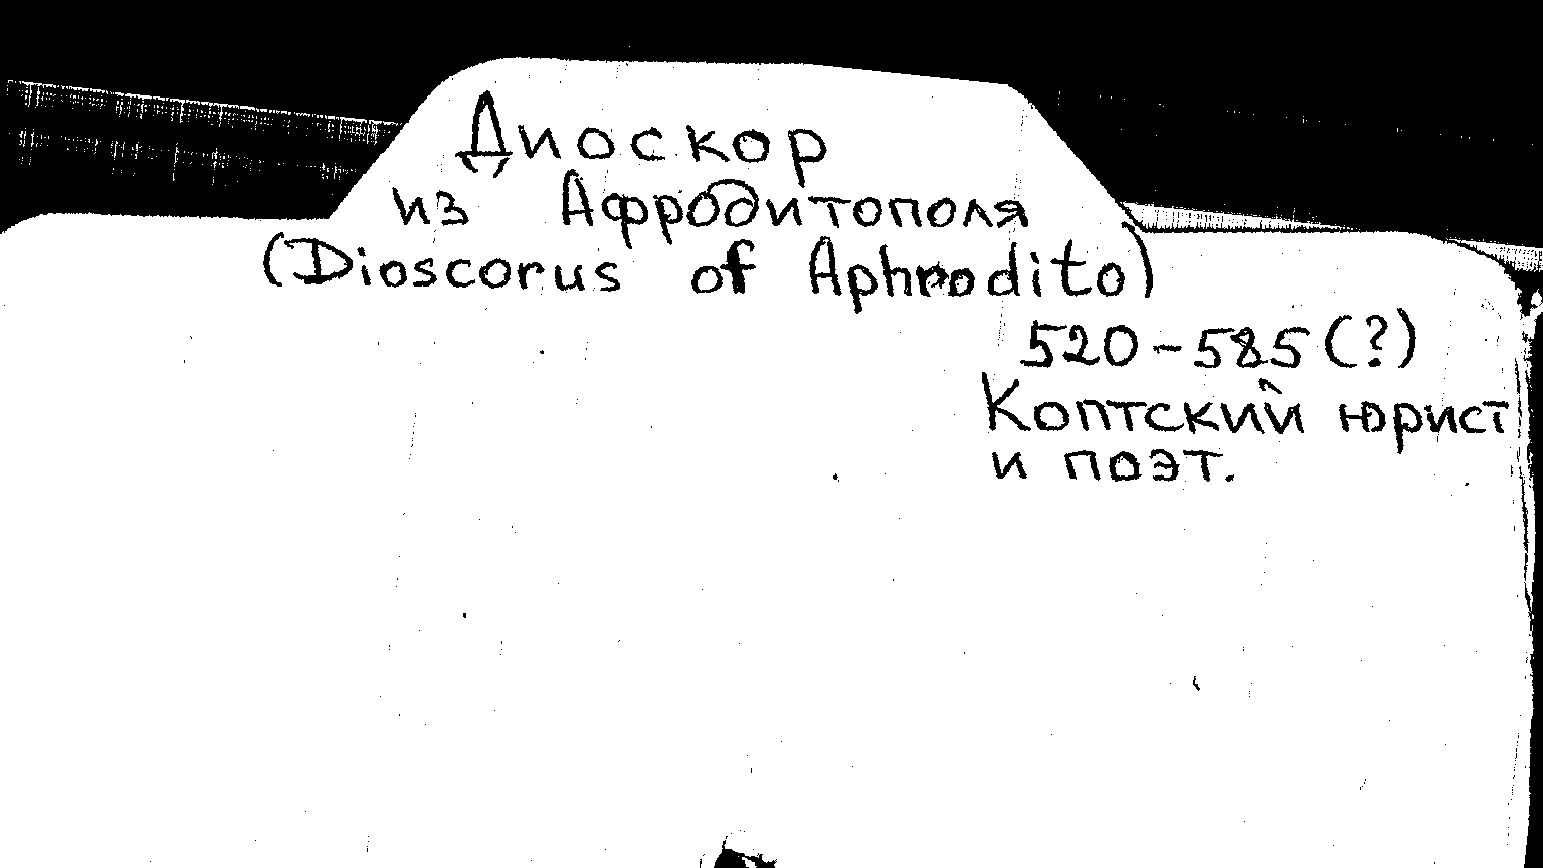 Диоскор
из Афродитополя
(Dioscorus of Aphrodito)
520-585(?)
Коптский юрист
и поэт.